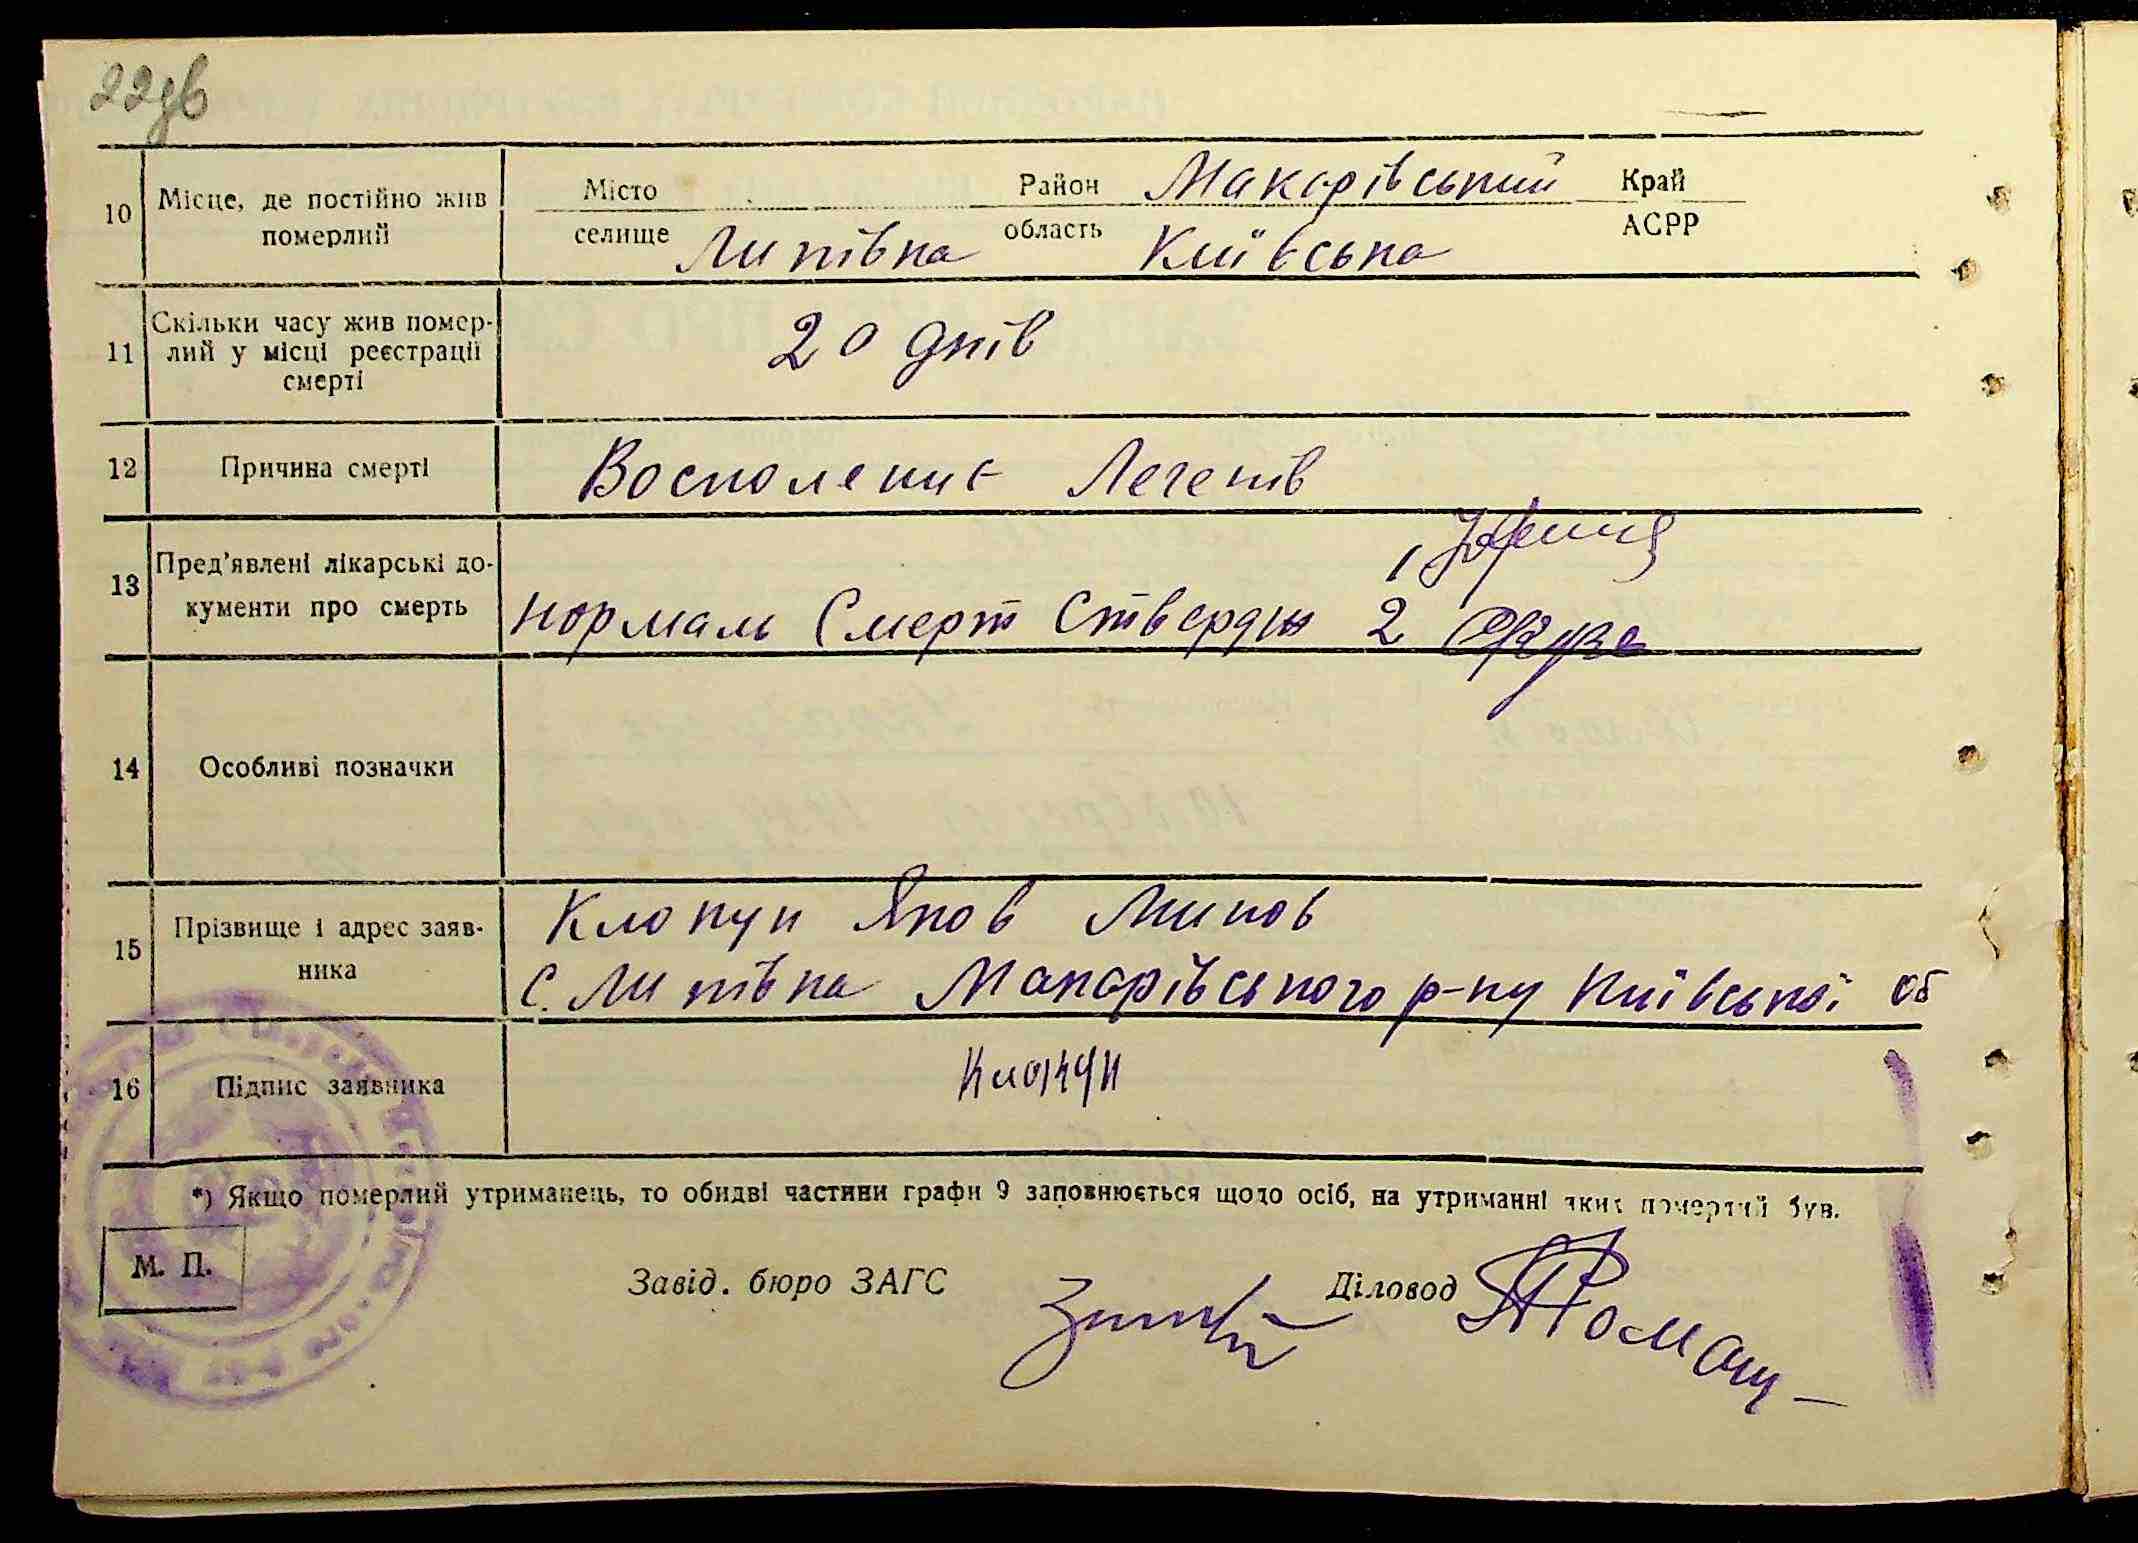 22зв
10 Місце, де постійно жив померлий
Місто Район Макарівський Край
селище Липівка область Київська АСРР
11 Скільки часу жив помер-
лий у місці реєстрації
смерті
20 днів
12 Причина смерті Восполениє Легенів
13 Пред'явлені лікарські до-
кументи про смерть
1
нормаль Смерт Ствердж 2
14 Особливі позначки
15 Прізвище і адрес заяв-
ника
Клопун Яков Миков
С. Липівка Макарівського р-ну Київської об
16 Підпис заявника Клопун
*) Якщо померлий утриманець, то обидві частини графи 9 заповнюється щодо осіб, на утриманні яких померлий був.
М. П.
Завід. бюро ЗАГС Діловод